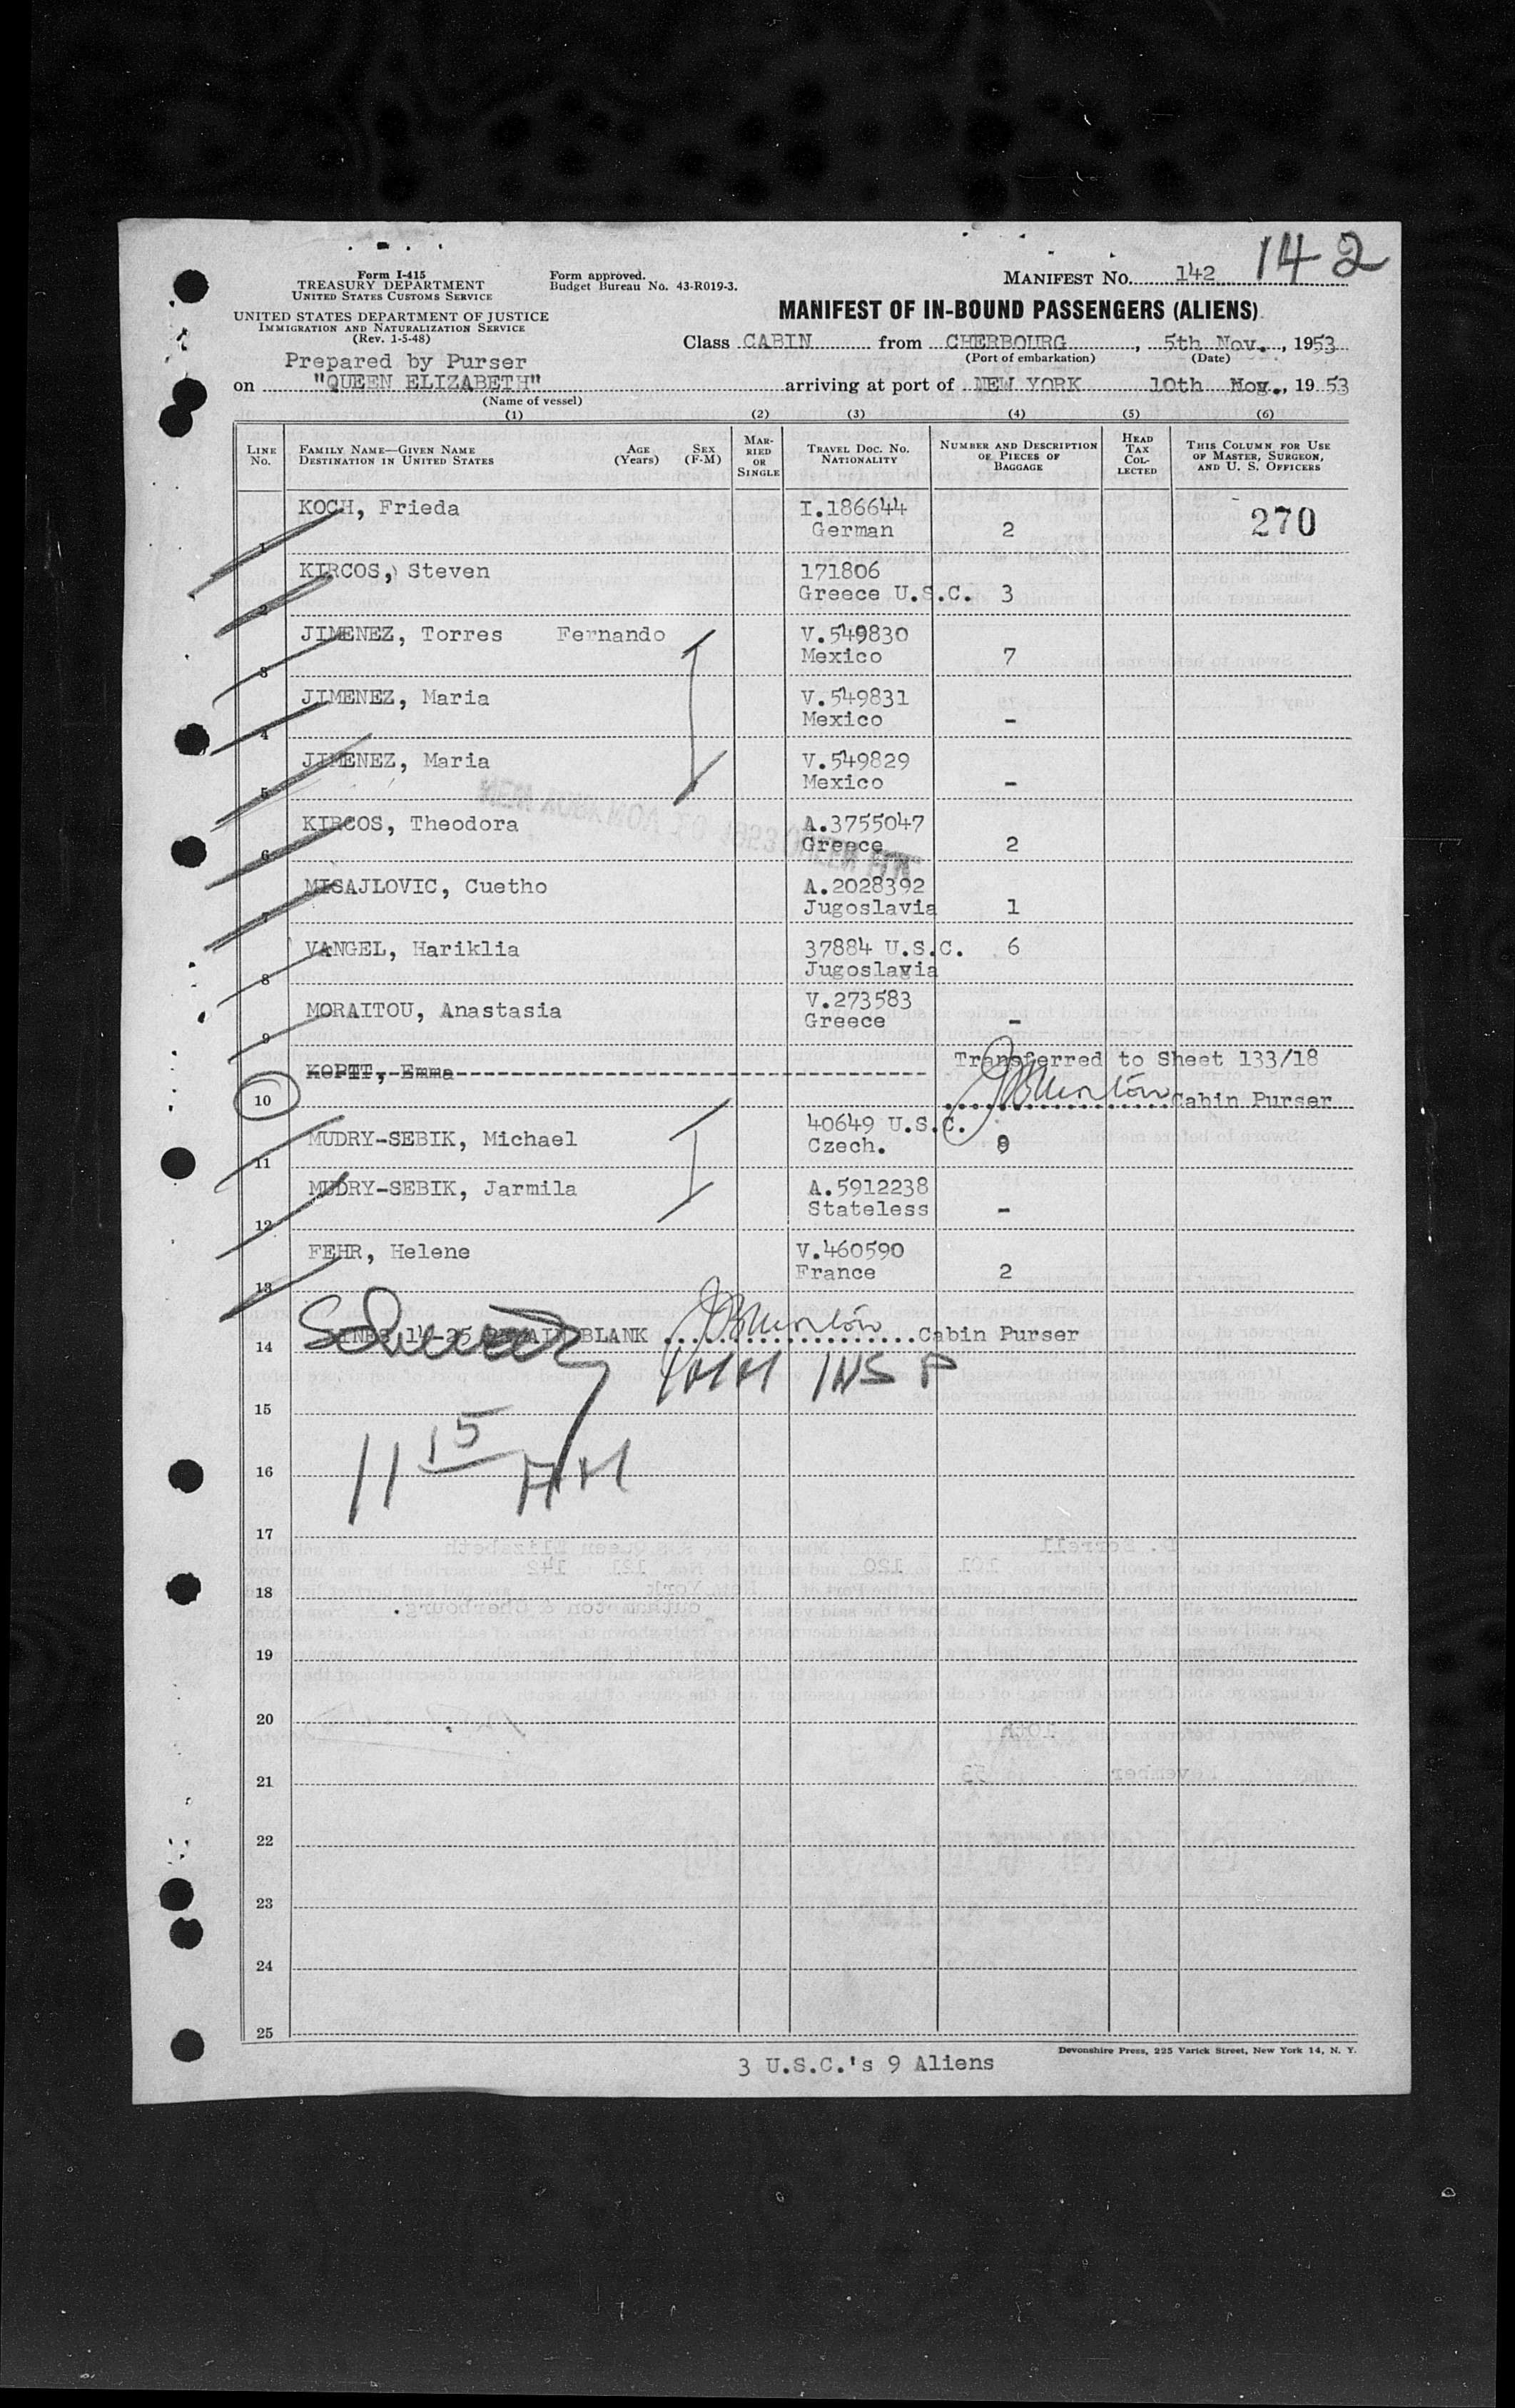 142
Form I-415
TREASURY DEPARTMENT
UNITED STATES CUSTOMS SERVICE
UNITED STATES DEPARTMENT OF JUSTICE
IMMIGRATION AND NATURALIZATION SERVICE
(Rev. 1-5-48)
Form approved.
Budget Bureau No. 43-R019-3.
MANIFEST No. 142
MANIFEST OF IN-BOUND PASSENGERS (ALIENS)
Class CABIN from CHERBOURG, 5th Nov., 1953
(Port of embarkation) (Date)
Prepared by Purser
on "QUEEN ELIZABETH" arriving at port of NEW YORK 10th Nov., 1953
(Name of vessel)
(1) (2) (3) (4) (5) (6)
LINE No. FAMILY NAME—GIVEN NAME DESTINATION IN UNITED STATES AGE (Years) SEX (F-M) MARRIED OR SINGLE TRAVEL DOC. NO. NATIONALITY NUMBER AND DESCRIPTION OF PIECES OF BAGGAGE HEAD TAX COLLECTED THIS COLUMN FOR USE OF MASTER, SURGEON, AND U. S. OFFICERS
KOCH, Frieda I.186644 270
1 German 2
KIRCOS, Steven 171806
2 Greece U.S.C. 3
JIMENEZ, Torres Fernando V.549830
3 Mexico 7
JIMENEZ, Maria V.549831
4 Mexico -
JIMENEZ, Maria V.549829
5 Mexico -
KIRCOS, Theodora A.3755047
6 Greece 2
MISAJLOVIC, Cuetho A.2028392
7 Jugoslavia 1
VANGEL, Hariklia 37884 U.S.C. 6
8 Jugoslavia
MORAITOU, Anastasia V.273583
9 Greece -
KOPTT, Emma Transferred to Sheet 133/18
10 Cabin Purser
MUDRY-SEBIK, Michael 40649 U.S.C.
11 Czech. 9
MUDRY-SEBIK, Jarmila A.5912238
12 Stateless -
FEHR, Helene V.460590
13 France 2
14 LINES 14-25 REMAIN BLANK Cabin Purser
INS P
15
11 15 AM
16
17
18
19
20
21
22
23
24
25
Devonshire Press, 225 Varick Street, New York 14, N. Y.
3 U.S.C.'s 9 Aliens